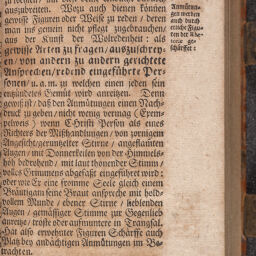 auszubreiten. Wozu auch dienen können
gewisse Figuren oder Weise zu reden / deren
man uns gemein nicht pflegt zugebrauchen/
aus der Kunst der Wolredenheit: als
gewisse Arten zu fragen/ auszuschrey-
en/ von andern zu andern gerichtete
Ansprechen/ redend eingeführte Per-
sonen/ u. a. m. zu welchen einen jeden sein
entzündetes Gemüt wird anreitzen. Denn
gewiß ist/ daß den Anmütungen einen Nach-
druck zu geben/ nicht wenig vermag (Exem-
pelsweis) wenn Christi Person als eines
Richters der Mißhandlungen/ von zornigem
Angesicht/ gerunzelter Stirne/ angeflamten
Augen/ mit Donnerkeilen von der Himmels-
höh bedrohend/ mit laut thonender Stimm/
volles Grimmens abgefaßt eingeführet wird:
oder wie Er eine fromme Seele gleich einem
Bräutigam seine Braut anspreche mit hold-
vollem Munde/ ebener Stirne/ lieblenden
Augen/ gemässiger Stimme zur Gegenlieb
anreitze/ tröste oder aufmuntere in Trangsal.
Hat also erwehnter Figuren Schärffe auch
Platz bey andächtigen Anmütungen im Be-
trachten.
Anmütun-
gen werden
auch durch
etliche Figu-
ren der Rhe-
toric ge-
schärffet: